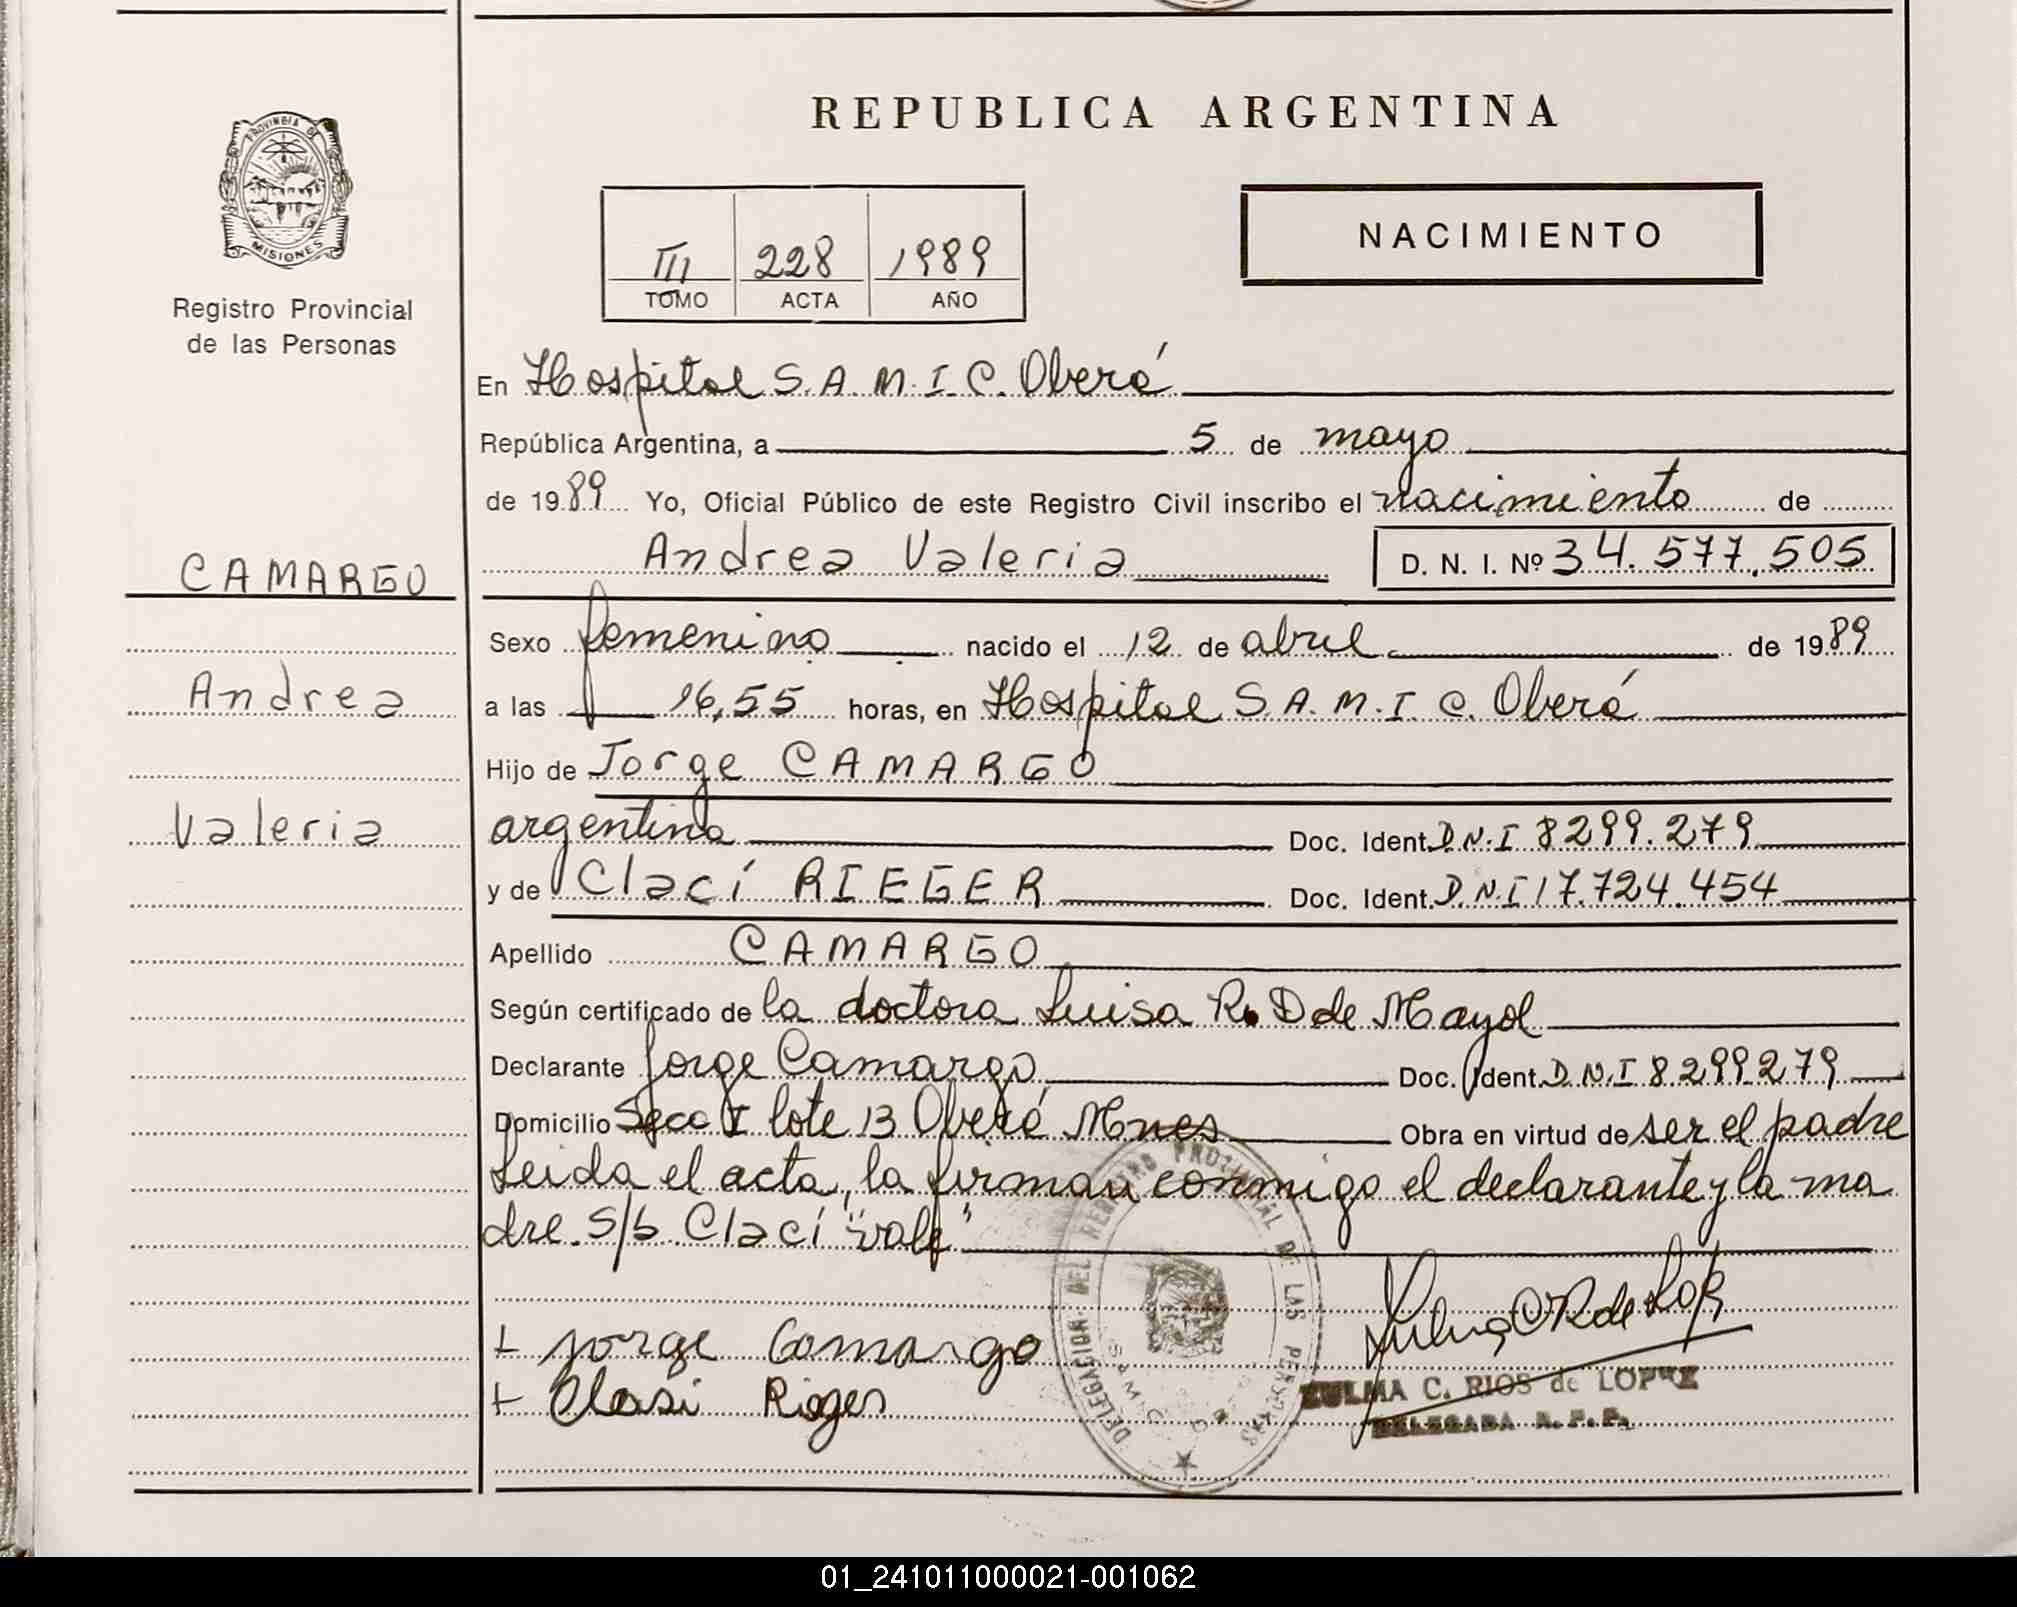 REPUBLICA ARGENTINA
PROVINCIA DE
MISIONES
Registro Provincial
de las Personas
III 228 1989
TOMO ACTA AÑO
NACIMIENTO
En Hospital S.A.M.I.C. Oberá
República Argentina, a 5 de mayo
de 1989 Yo, Oficial Público de este Registro Civil inscribo el nacimiento de
Andrea Valeria D. N. I. Nº 34.577.505
CAMARGO
Andrea
Valeria
Sexo femenino nacido el 12 de abril de 1989
a las 16,55 horas, en Hospital S.A.M.I.C. Oberá
Hijo de Jorge CAMARGO
argentina Doc. Ident. D.N.I 8299.279
y de Clací RIEGER Doc. Ident. D.N.I 17.724.454
Apellido CAMARGO
Según certificado de la doctora Luisa R. D de Mayol
Declarante Jorge Camargo Doc. Ident. D.N.I 8299279
Domicilio Secc I lote 13 Oberá Mnes Obra en virtud de ser el padre
Leida el acta, la firman conmigo el declarante y la ma
dre. S/b Clací "vale"
+ Jorge Camargo
+ Clasi Riger
DELEGACION DEL REGISTRO PROVINCIAL DE LAS PERSONAS
ZULMA C. RIOS de LOPEZ
DELEGADA R. P. P.
01_241011000021-001062